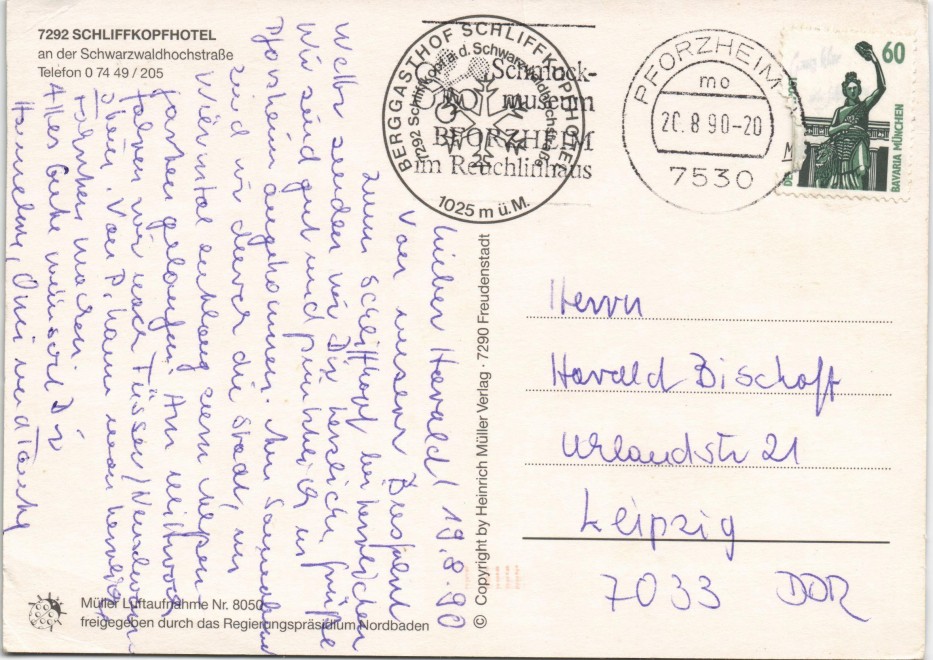 7292 SCHLIFFKOPFHOTEL
an der Schwarzwaldhochstraße
Telefon 0 74 49 / 205
BERGGASTHOF SCHLIFFKOPFHOTEL
7292 Schliffkopf a. d. Schwarzwaldhochstraße
1025 m ü. M.
Schmuck-
museum
PFORZHEIM
im Reuchlinhaus
PFORZHEIM
mo
20.8.90-20
7530
60
BAVARIA MÜNCHEN
Lieber Harald! 19.8.90
Von unserem
zum Schliffkopf bei herrlichem
Wetter senden wir Dir herzliche Grüße
Wir sind gut und pünktlich in
Pforzheim angekommen. Am Sonnabend
sind wir durch die Stadt, im
Würmtal entlang zum
gelaufen. Am Mittwoch
fahren wir nach Füssen/
Von P. kann man
machen.
Alles Gute wünscht Dir
Hannelore, Omi und
Herrn
Harald Bischoff
Urlandstr 21
Leipzig
7033 DDR
© Copyright by Heinrich Müller Verlag · 7290 Freudenstadt
Müller Luftaufnahme Nr. 8050
freigegeben durch das Regierungspräsidium Nordbaden